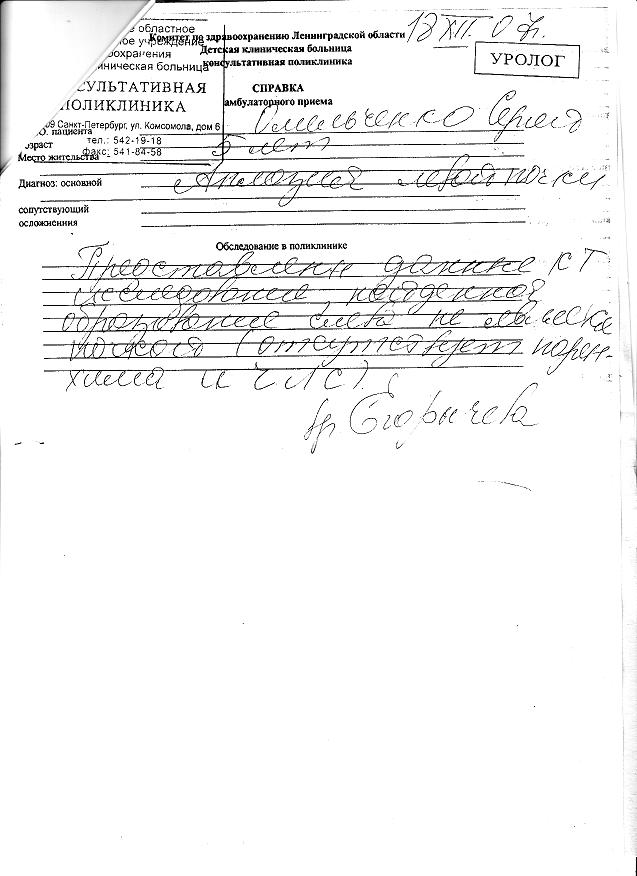 е областное
ное учреждение
оохранения
иническая больница
СУЛЬТАТИВНАЯ
ПОЛИКЛИНИКА
09 Санкт-Петербург, ул. Комсомола, дом 6
тел.: 542-19-18
факс: 541-84-58
Комитет по здравоохранению Ленинградской области
Детская клиническая больница
консультативная поликлиника
18 XII 07.
УРОЛОГ
СПРАВКА
амбулаторного приема
О. пациента Омельченко Сергей
озраст 5 лет
Место жительства
Диагноз: основной Аплазия левой почки
сопутствующий
осложнения
Обследование в поликлинике
Представлены данные КТ
исследование, найденное
образование слева не является
почкой (отсутствует парен-
хима и ЧЛС).
вр Егорычева